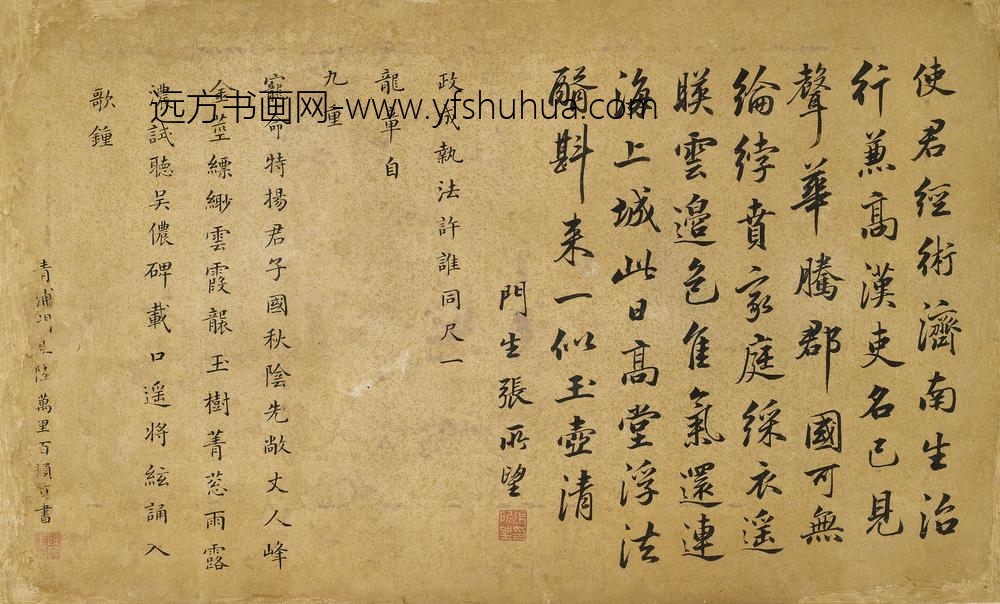 使君經術濟南生治
行兼高漢吏名已見
聲華騰郡國可無
綸綍賁家庭綵衣遥
暎雲邉色隹氣還連
海上城此日高堂浮法
醑斟来一似玉壺清
門生張所望
政成執法許誰同尺一
龍章自
九重
寵命特揚君子國秋陰先敞丈人峰
金莖縹緲雲霞襲玉樹菁葱雨露
濃試聽吴儂碑載口遥將絃誦入
歌鐘
青浦門生陸萬里百頓首書
远方书画网 www.yfshuhua.com